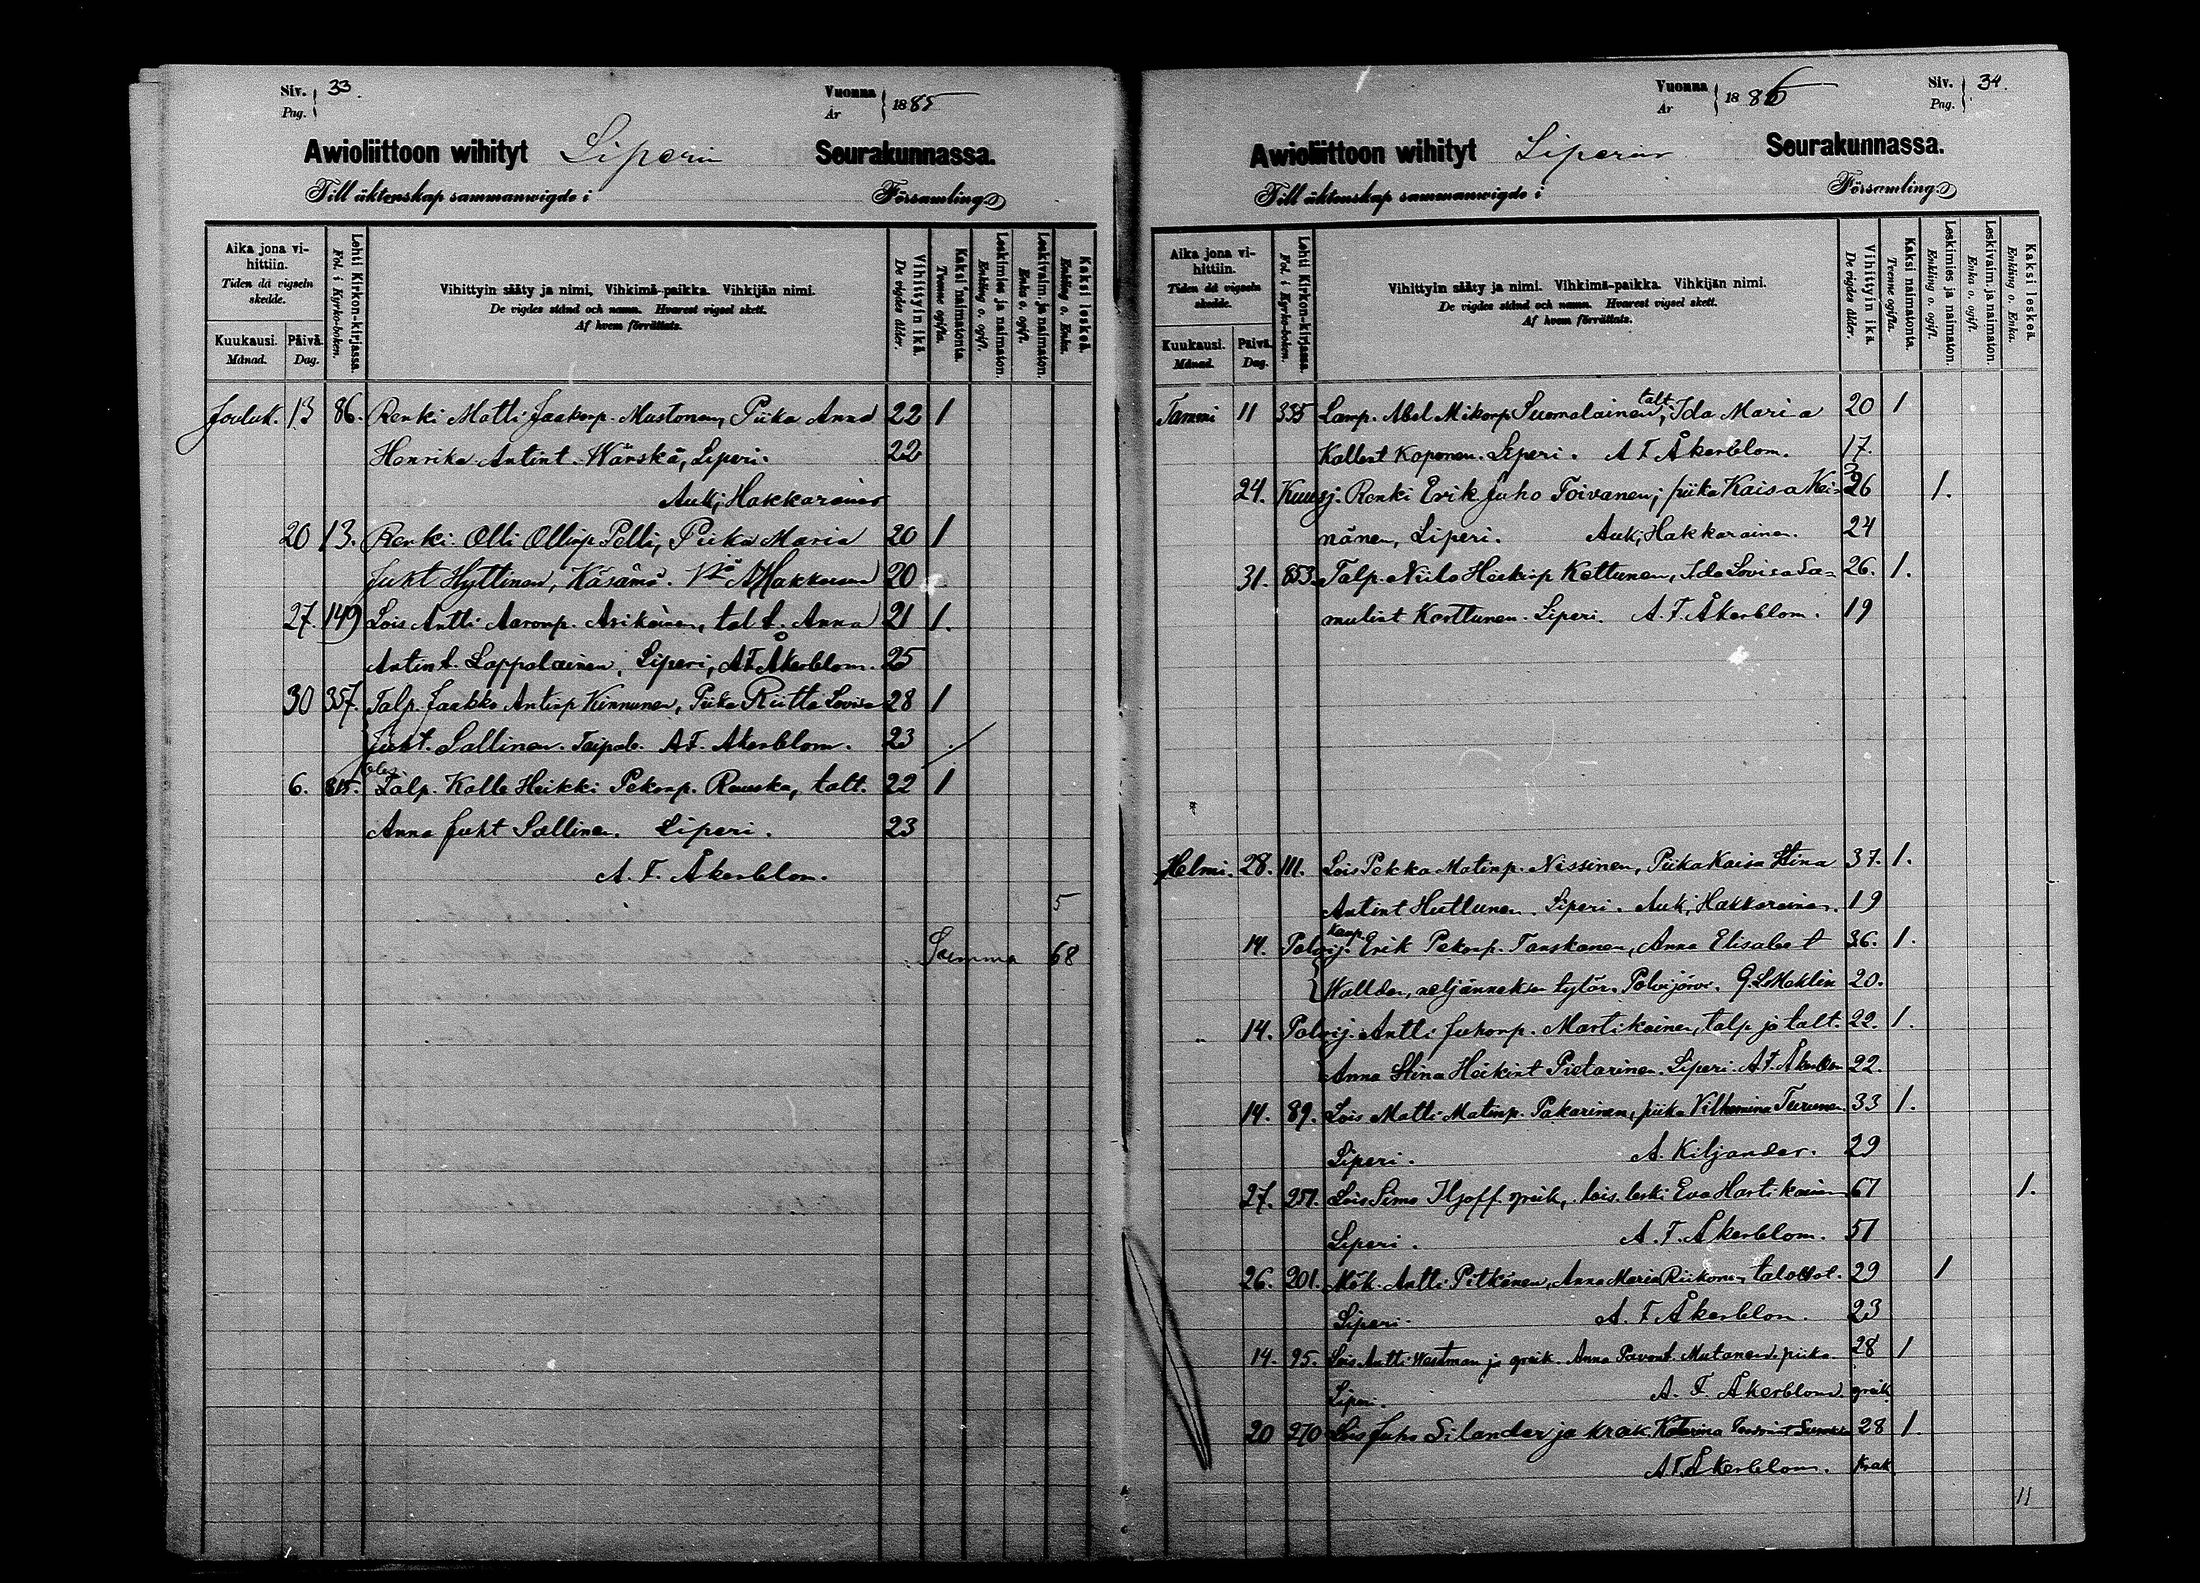 Siv. Pag. 33.
Vuonna År 1885
Awioliittoon wihityt Liperin Seurakunnassa.
Till äktenskap sammanwigde i Församling
Aika jona vihittiin.
Tiden då vigseln skedde.
Kuukausi. Månad.
Päivä. Dag.
Lehti Kirkon-kirjassa.
Fol. i Kyrko-boken.
Vihittyin sääty ja nimi, Vihkimä-paikka. Vihkijän nimi.
De vigdes stånd och namn. Hvarest vigsel skett.
Af hvem förrättats.
Vihittyin ikä.
De vigdes ålder.
Kaksi naimatonta.
Tvenne ogifta.
Leskimies ja naimaton.
Enkling o. ogift.
Leskivaim. ja naimaton.
Enka o. ogift.
Kaksi leskeä.
Enkling o. Enka.
Jouluk. 13 86. Renki Matti Jaakonp. Mustonen, Piika Anna 22 1
Henrika Antint. Wänskä, Liperi. 22
Auk; Hakkarainen
20 13. Renki Olli Ollinp Pelli, Piika Maria 20 1
Juht Hyttinen, Käsämä. A Hakkarainen 20
27. 149 Lois Antti Aaronp. Asikainen, tal t. Anna 21 1.
Antint. Lappalainen, Liperi, A F Åkerblom. 25
30 357. Talp. Jaakko Antinp Kinnunen, Piika Riitta Lovisa 28 1
Juht. Sallinen. Taipale. A F. Åkerblom. 23
6. 815. Talp. Kalle Heikki Pekanp. Rouska, talt. 22 1
Anna Juht Sallinen. Liperi. 23
A. F. Åkerblom.
5
Summa 68
Vuonna År 1886
Siv. Pag. 34.
Awioliittoon wihityt Liperin Seurakunnassa.
Till äktenskap sammanwigde i Församling
Aika jona vihittiin.
Tiden då vigseln skedde.
Kuukausi. Månad.
Päivä. Dag.
Lehti Kirkon-kirjassa.
Fol. i Kyrko-boken.
Vihittyin sääty ja nimi. Vihkimä-paikka. Vihkijän nimi.
De vigdes stånd och namn. Hvarest vigsel skett.
Af hvem förrättats.
Vihittyin ikä.
De vigdes ålder.
Kaksi naimatonta.
Tvenne ogifta.
Leskimies ja naimaton.
Enkling o. ogift.
Leskivaim. ja naimaton.
Enka o. ogift.
Kaksi leskeä.
Enkling o. Enka.
Tammi 11 335 Lamp. Abel Mikonp Suomalainen, talt. Ida Maria 20 1
Kallent Koponen. Liperi. A F Åkerblom. 17.
24. Kuusj. Renki Erik Juho Toivanen; piika Kaisa Hei- 26 1.
nänen, Liperi. Auk; Hakkarainen. 24
31. 853. Talp. Niilo Heikinp Kettunen, Ida Lovisa Sa- 26. 1.
mulint Korttunen. Liperi. A. F. Åkerblom. 19
Helmi. 28. 111. Lois Pekka Matinp. Nissinen, Piika Kaisa Stina 37. 1.
Antint Huttunen. Liperi. Auk; Hakkarainen. 19
14. Polvij. Erik Pekanp. Tanskanen, Anna Elisabet 36. 1.
Wallden, neljänneksen tytär. Polvijärvi. 20.
14. Polvij. Antti Juhonp. Martikainen, talp ja talt. 22. 1.
Anna Stina Heikint Pietarinen. Liperi. A. F. Åkerblom 22.
14. 89. Lois Matti Matinp. Pakarinen, piika Vilhemina Turunen. 33 1.
Liperi. A. Kiljander. 29
27. 257. Lois Simo Iljoff greik, lois. leski Eva Hartikainen 67 1.
Liperi. A. F. Åkerblom. 51
26. 201. Mök. Antti Pitkänen, Anna Maria Riikonen 29 1
Liperi. A. F Åkerblom. 23
14. 95. Lois Antti Wartman ja greik. Anna Pavont. Mutanen, piika 28 1
Liperi. A. F. Åkerblom. greik
20 270 Lois Juho Silander ja kreik. Katarina 28 1
A F Åkerblom. kreik
11